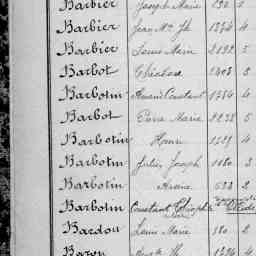 Barbier Joseph Marie
Barbier Jean Me Jh 1334 4
Barbier Louis Marie 2192 5
Barbot Théodore 2403 5
Barbotin Amand Constant 1784 4
Barbot Pierre Marie 2238 5
Barbotin Henri 4
Barbotin Julien Joseph 1180 3
Barbotin 2
Barbotin Constant Théophile
Bardou Louis Marie 180 2
Baron Jh 4